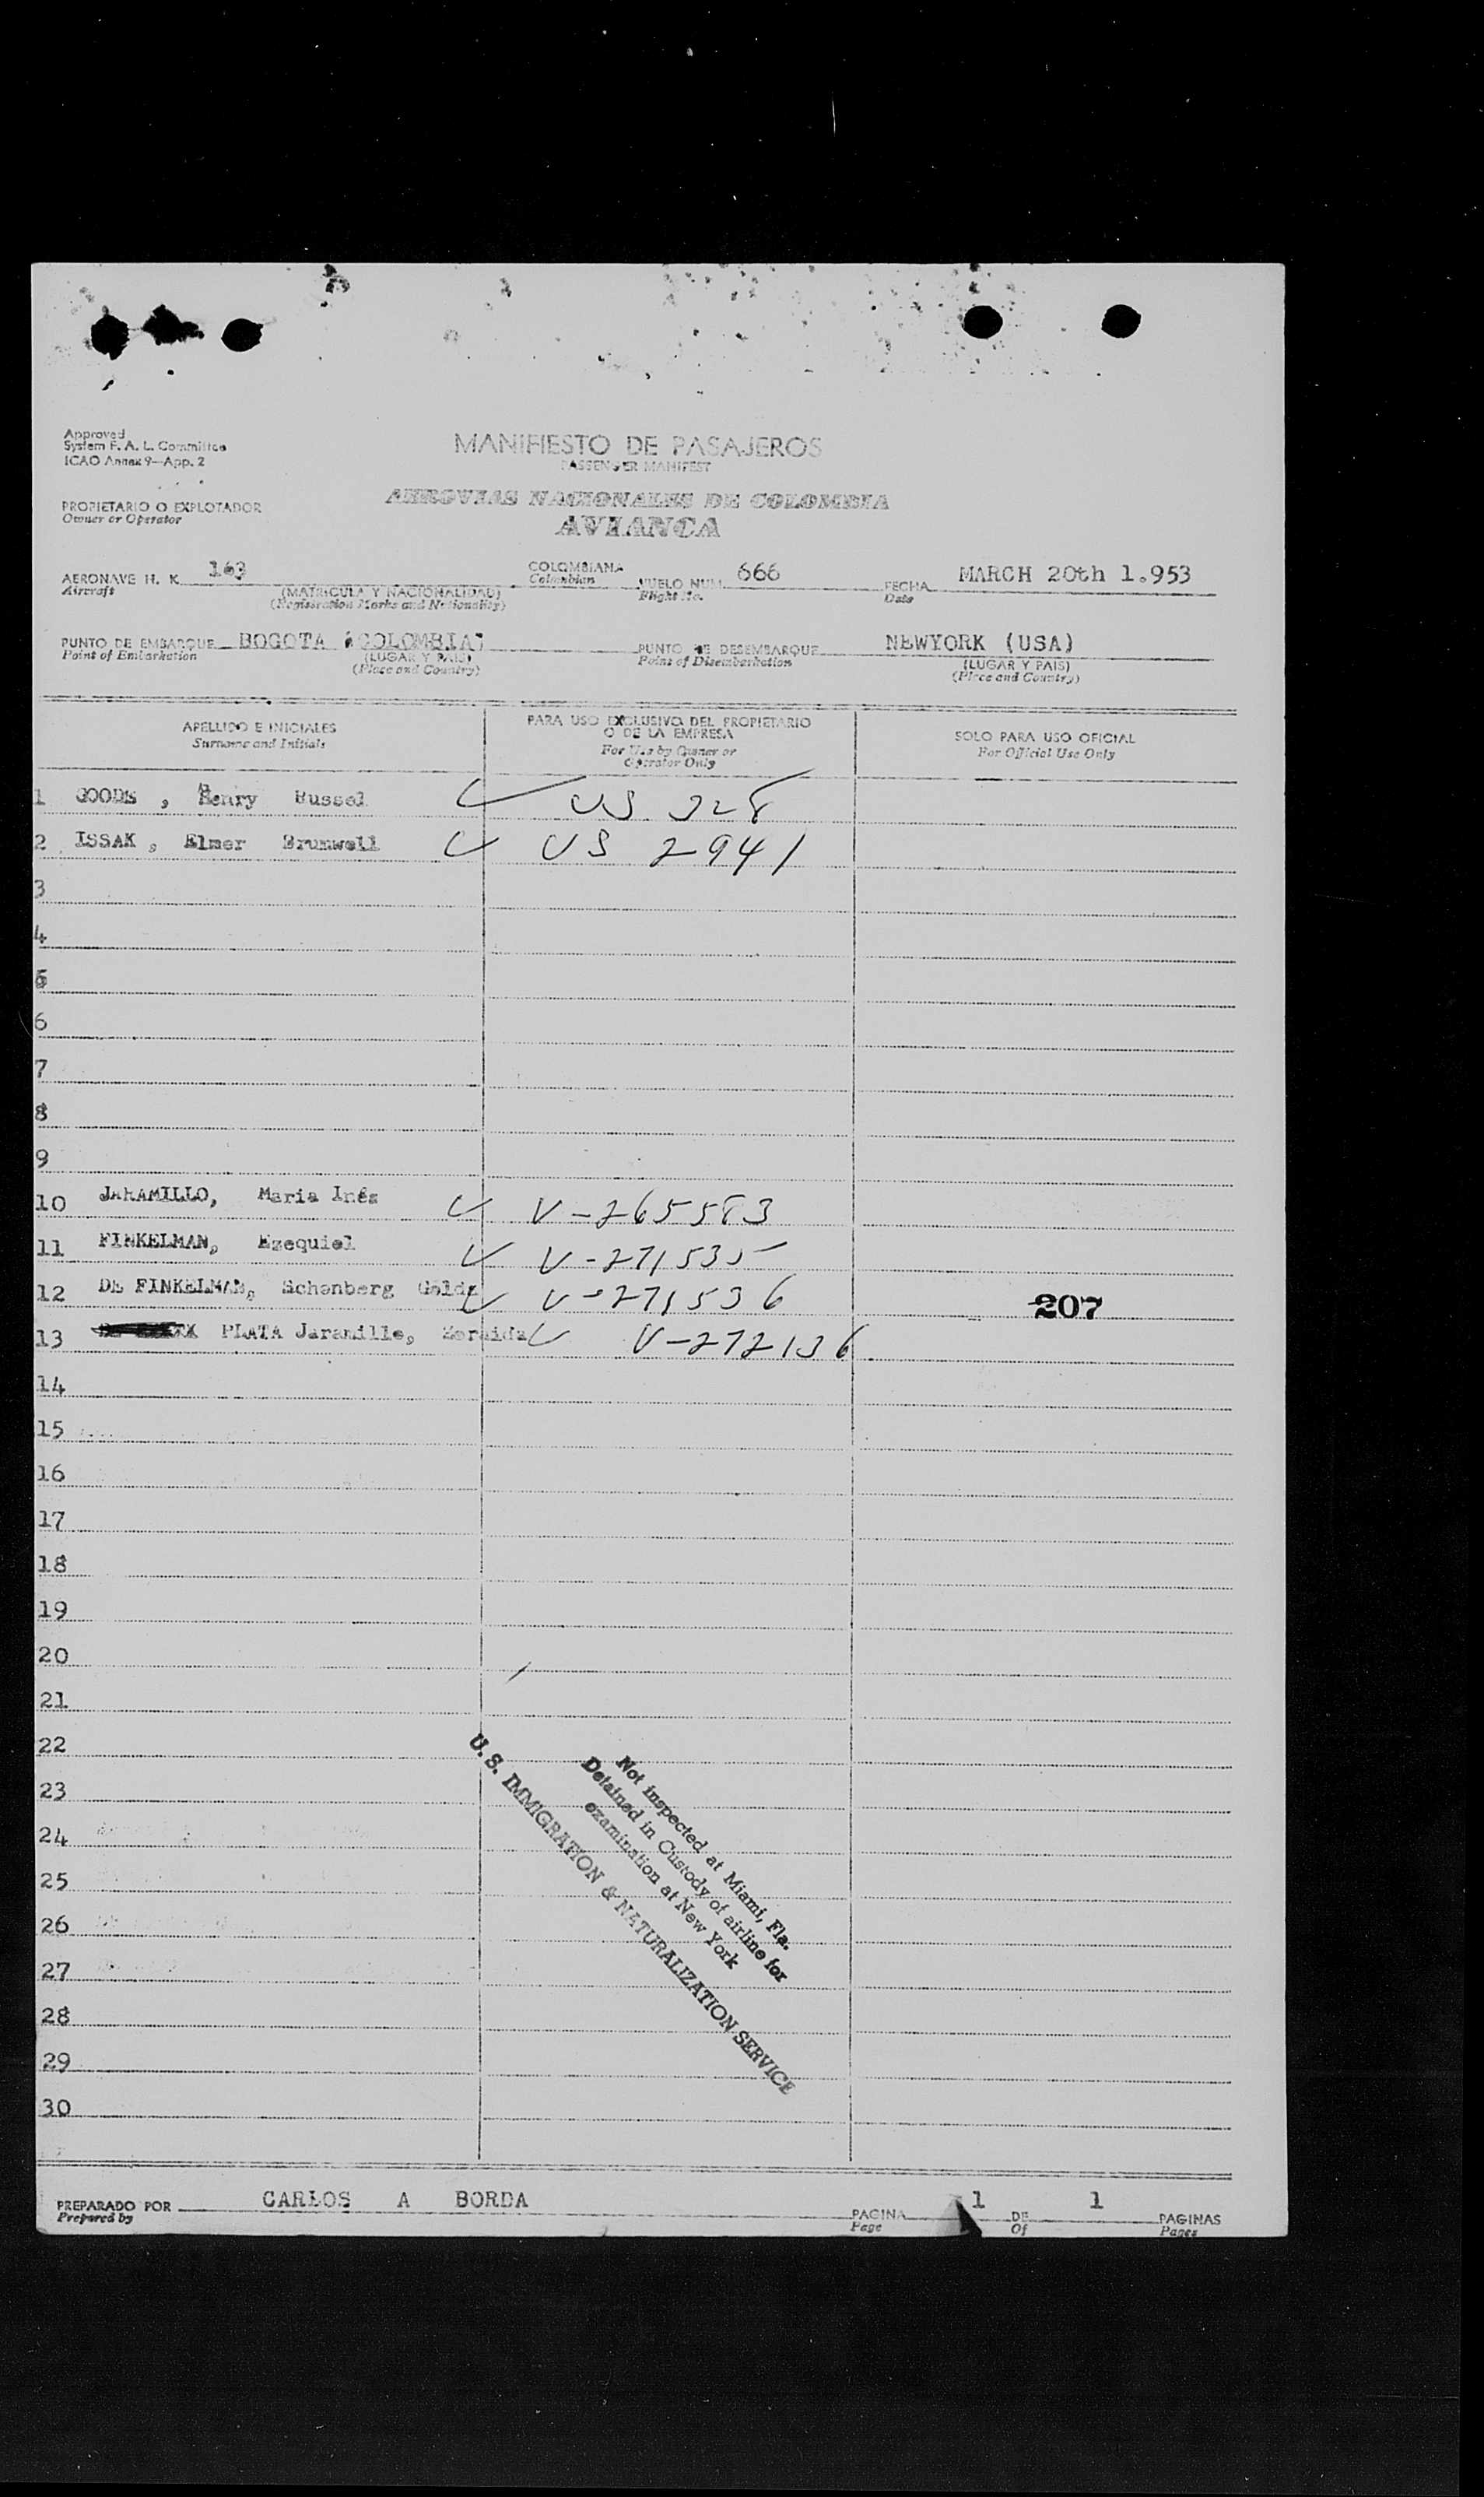 Approved
System F. A. L. Committee
ICAO Annex 9—App. 2
MANIFIESTO DE PASAJEROS
PASSENGER MANIFEST
PROPIETARIO O EXPLOTADOR
Owner or Operator
AEROVIAS NACIONALES DE COLOMBIA
AVIANCA
AERONAVE H. K. 163 COLOMBIANA VUELO NUM. 666 FECHA MARCH 20th 1.953
Aircraft (MATRICULA Y NACIONALIDAD) Colombian Flight No. Date
(Registration Marks and Nationality)
PUNTO DE EMBARQUE BOGOTA (COLOMBIA) PUNTO DE DESEMBARQUE NEWYORK (USA)
Point of Embarkation (LUGAR Y PAIS) Point of Disembarkation (LUGAR Y PAIS)
(Place and Country) (Place and Country)
APELLIDO E INICIALES PARA USO EXCLUSIVO DEL PROPIETARIO SOLO PARA USO OFICIAL
Surname and Initials O DE LA EMPRESA For Official Use Only
For Use by Owner or
Operator Only
1 Henry Russel US 328
2 ISSAK, Elmer Brumwell US 2941
3
4
5
6
7
8
9
10 JARAMILLO, Maria Inés V-265583
11 FINKELMAN, Ezequiel V-271535
12 DE FINKELMAN, Schonberg Golda V-271536
207
13 PLATA Jaramillo, Zoraida V-272136
14
15
16
17
18
19
20
21
22
23
24
25
26
27
28
29
30
Not inspected at Miami, Fla.
Detained in Custody of airline for
examination at New York
U. S. IMMIGRATION & NATURALIZATION SERVICE
PREPARADO POR CARLOS A BORDA PAGINA 1 DE 1 PAGINAS
Prepared by Page Of Pages